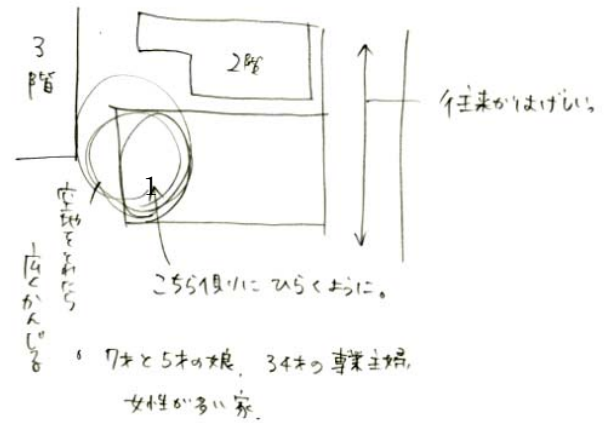 3階
2階
往来がはげしい。
1
空地をとれたら
広くかんじる
こちら側にひらくように。
7才と5才の娘、34才の専業主婦、
女性が多い家.